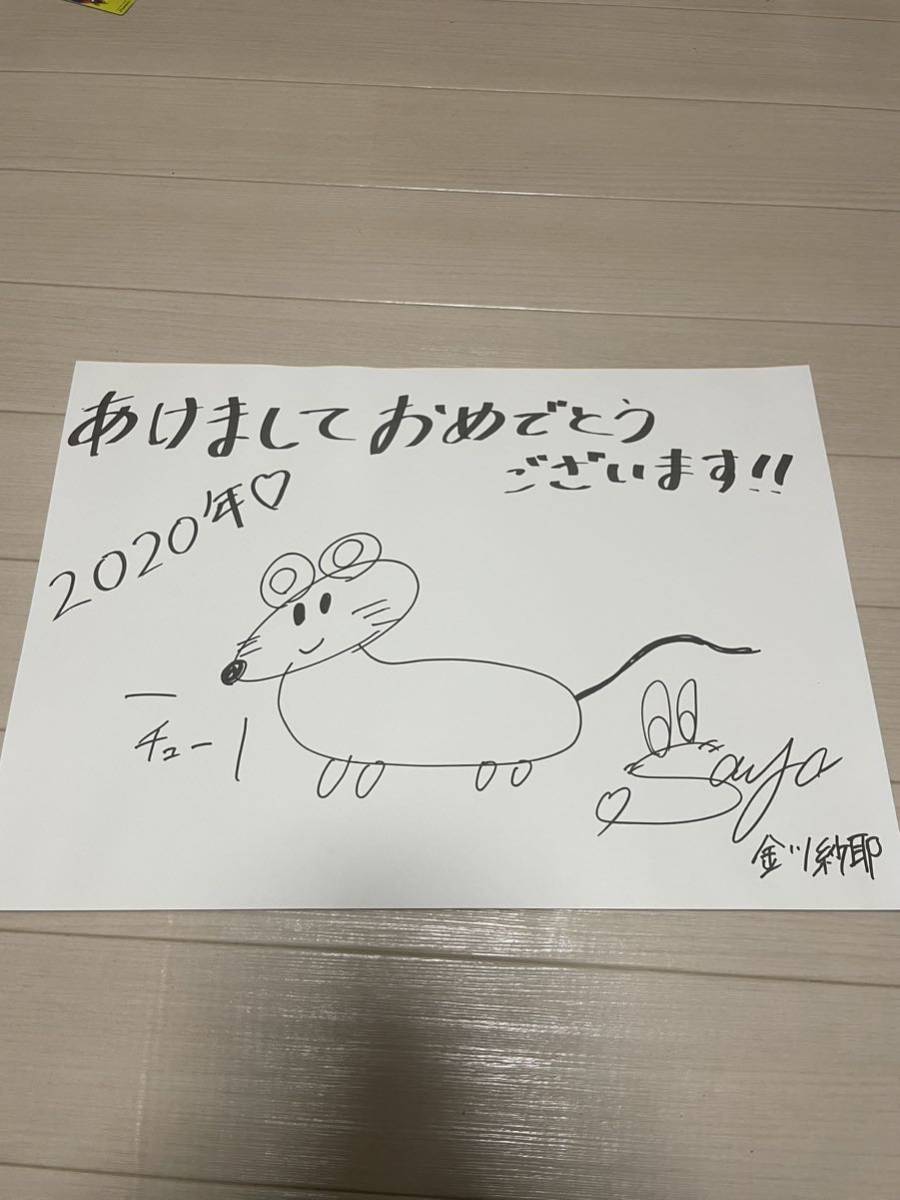 あけまして おめでとう
ございます!!
2020年♡
チュー
Saya
金川紗耶